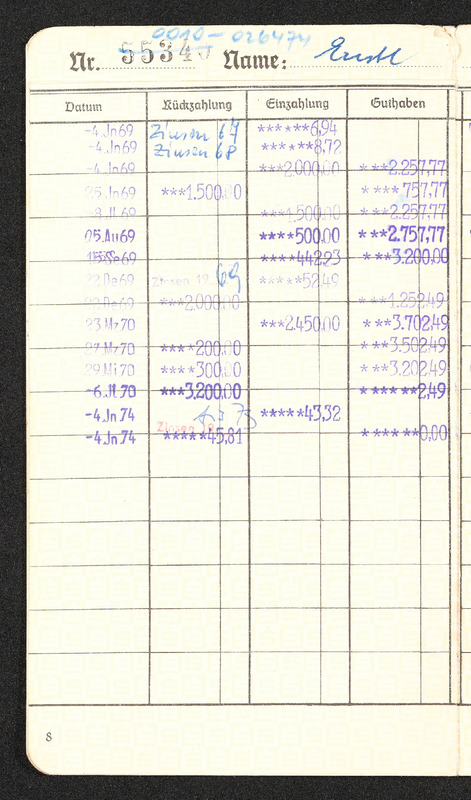 0010-026474
Nr. 55340 Name:
Datum Rückzahlung Einzahlung Guthaben
-4.Jn69 Zinsen 67 ******6,94
-4.Jn69 Zinsen 68 ******8,72
-4.Jn69 ***2.000,00 ***2.257,77
25.Jn69 ***1.500,00 ****757,77
-8.Jl.69 ***1.500,00 ***2.257,77
05.Au69 ****500,00 ***2.757,77
15.Se69 ****442,23 ***3.200,00
22.De69 Zinsen 19 69 *****52,49
22.De69 ***2.000,00 ***1.252,49
23.Mz70 ***2.450,00 ***3.702,49
27.Mz70 ****200,00 ***3.502,49
29.Mi70 ****300,00 ***3.202,49
-6.Jl.70 ***3.200,00 ******2,49
-4.Jn.74 *****43,32
-4.Jn.74 Zinsen 19 73 *****45,81 ******0,00
8